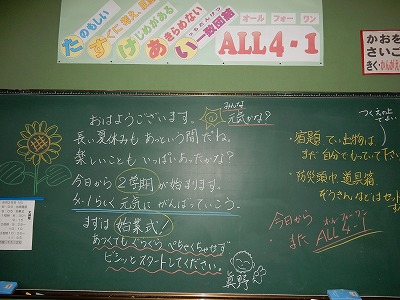 たのもしい
すぐに答え、言
けじめがある
あきらめない
いちだんけつ
い一致団結
オール フォー ワン
ALL 4-1
かおを
さいご
きく・かんがえ
おはようございます。
みんな
元気かな？
長い夏休みもあっという間だね。
楽しいことも いっぱいあったかな？
今日から 2学期 が始まります。
4-1らしく 元気に がんばっていこう。
まずは 始業式！
あつくてもぐらぐら ぺちゃくちゃせず
ビシッとスタートしてください。
真野
つくえの上
でよい
・宿題 てい出物は
まだ自分でもって下さい
・防災頭巾 道具箱
ぞうきんなどはセット
今日から
また ALL 4-1